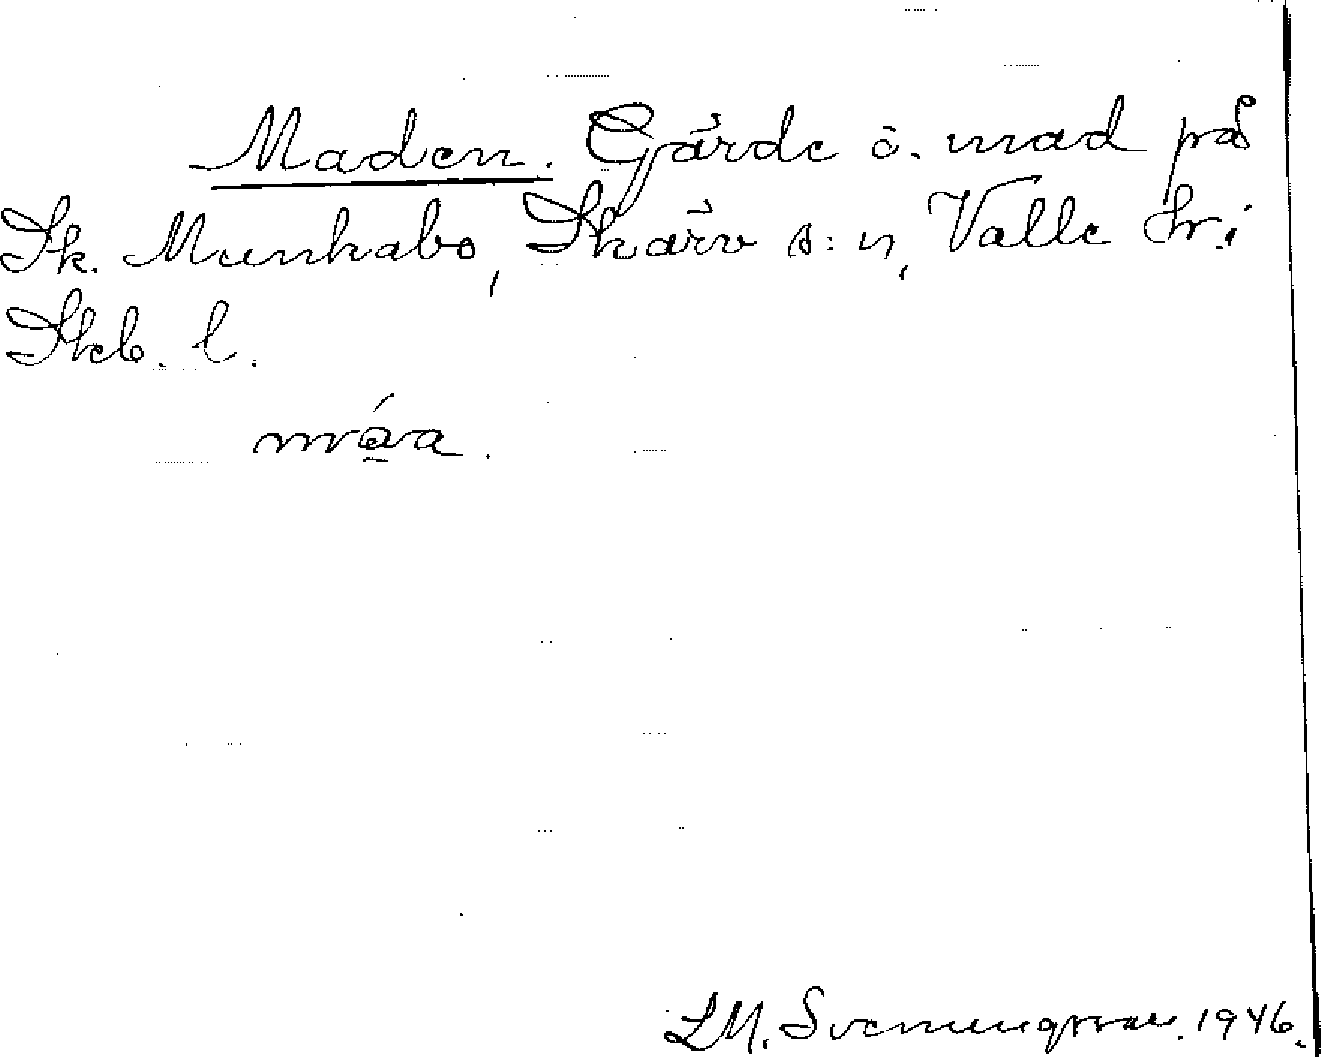 Maden. Gärde o. mad på
Sk. Munkabo, Skärv s:n, Valle hr. i
Skb. l.
L M. Svenungsson. 1946.